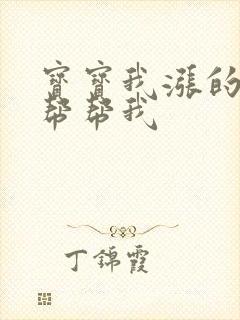 寶寶我漲的
幫幫我
丁錦霞